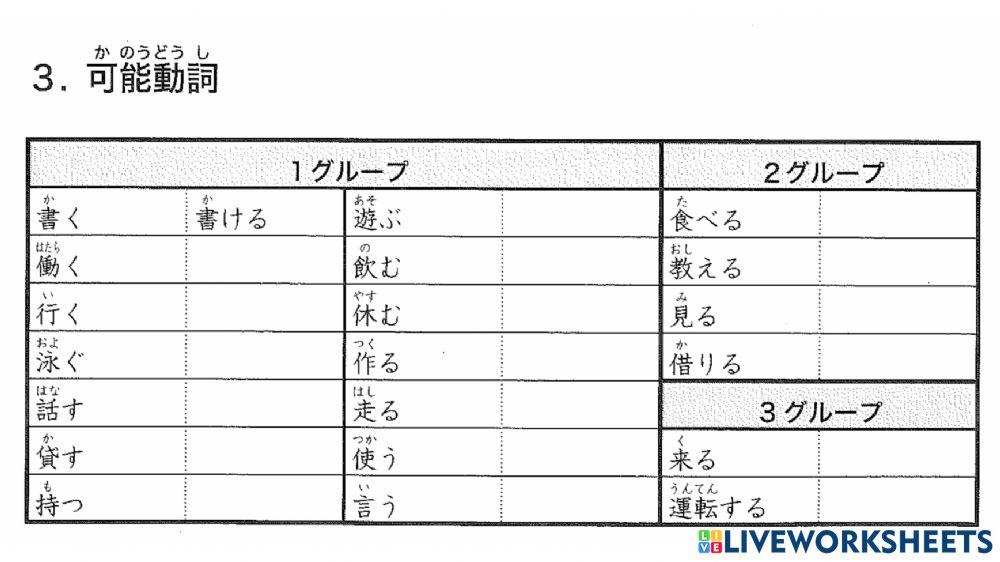 か のうどう し
3. 可能動詞
1グループ
か
書く
か
書ける
はたら
働く
い
行く
およ
泳ぐ
はな
話す
か
貸す
も
持つ
あそ
遊ぶ
の
飲む
やす
休む
つく
作る
はし
走る
つか
使う
い
言う
2グループ
た
食べる
おし
教える
み
見る
か
借りる
3グループ
く
来る
うんてん
運転する
LIVE LIVEWORKSHEETS